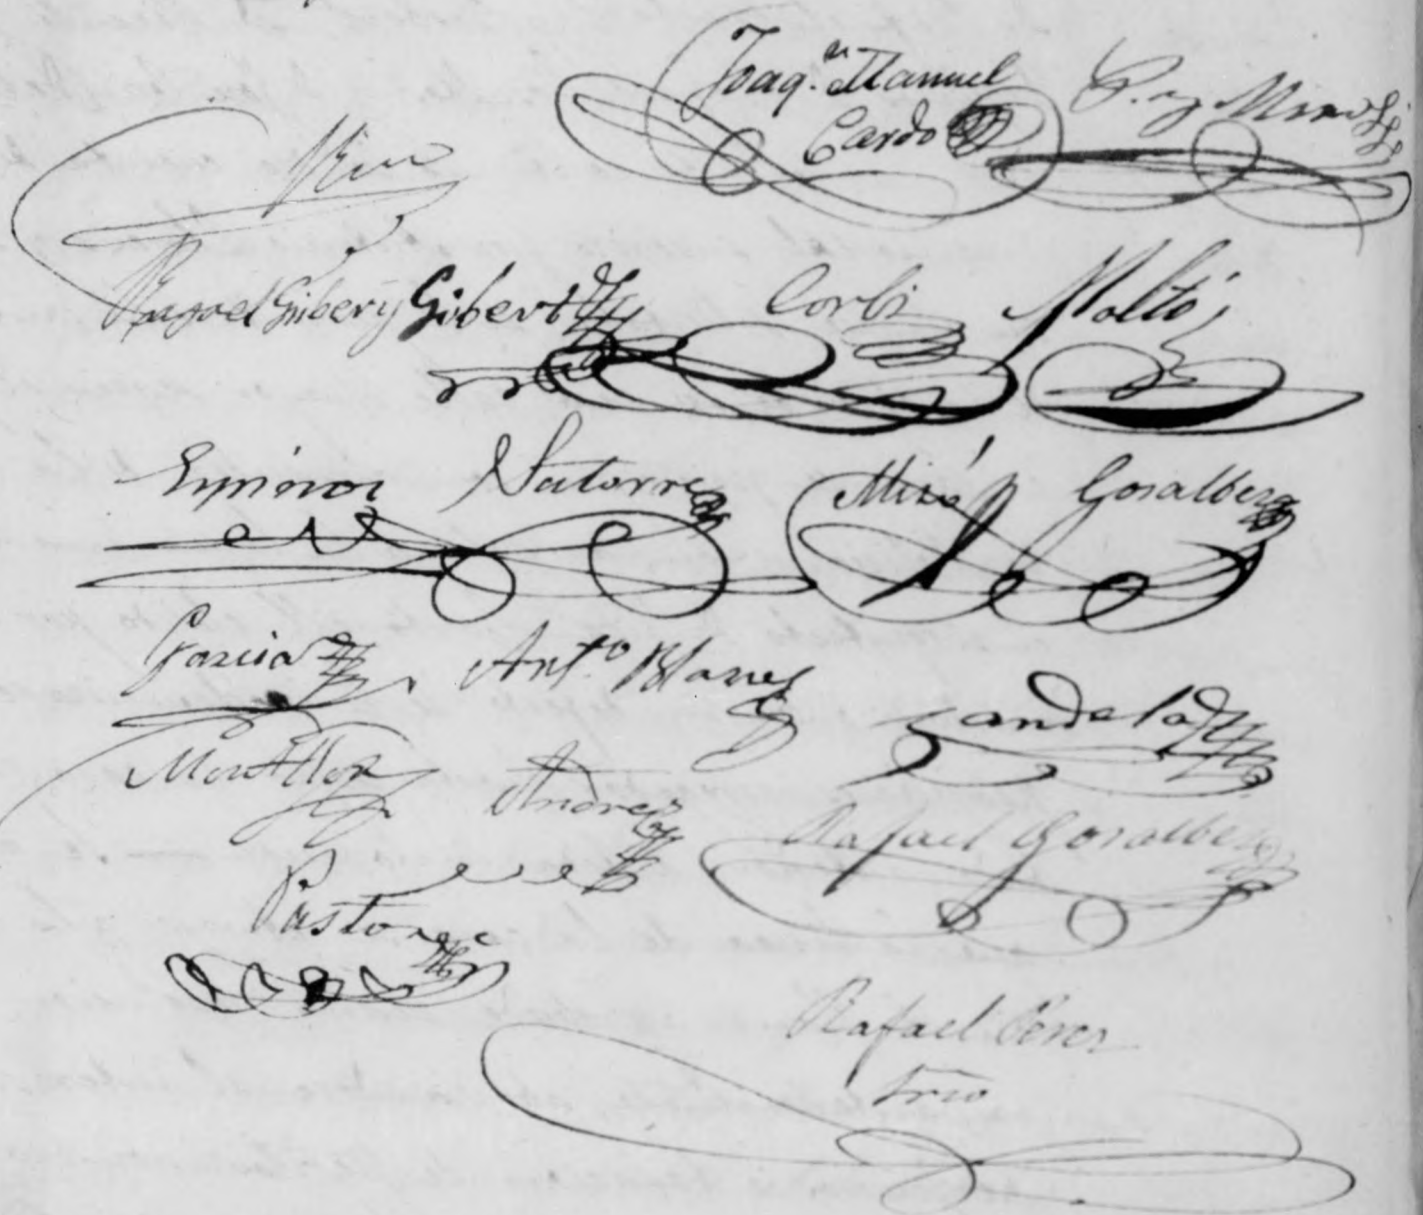 Joaq.n Manuel
Cardo
Rafael Gisbert y Gisbert Corbi Moltó
Espinos Satorre Miró Gosalbez
Garcia Ant.o Blanes
Candela
Montllor Andres
Rafael Gosalbez
Pastor
Rafael Perez
Srio